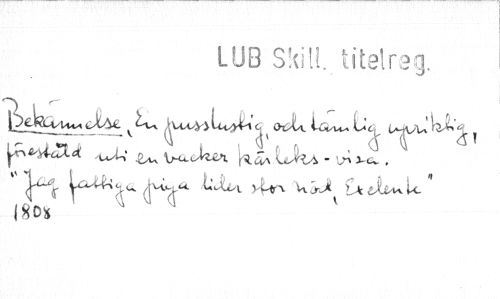 LUB Skill. titelreg.
Bekännelse, En pusslustig, och tämlig upriktig,
förestäld uti en vacker kärleks-visa.
"Jag fattiga piga lider stor nöd, Exelente"
1808